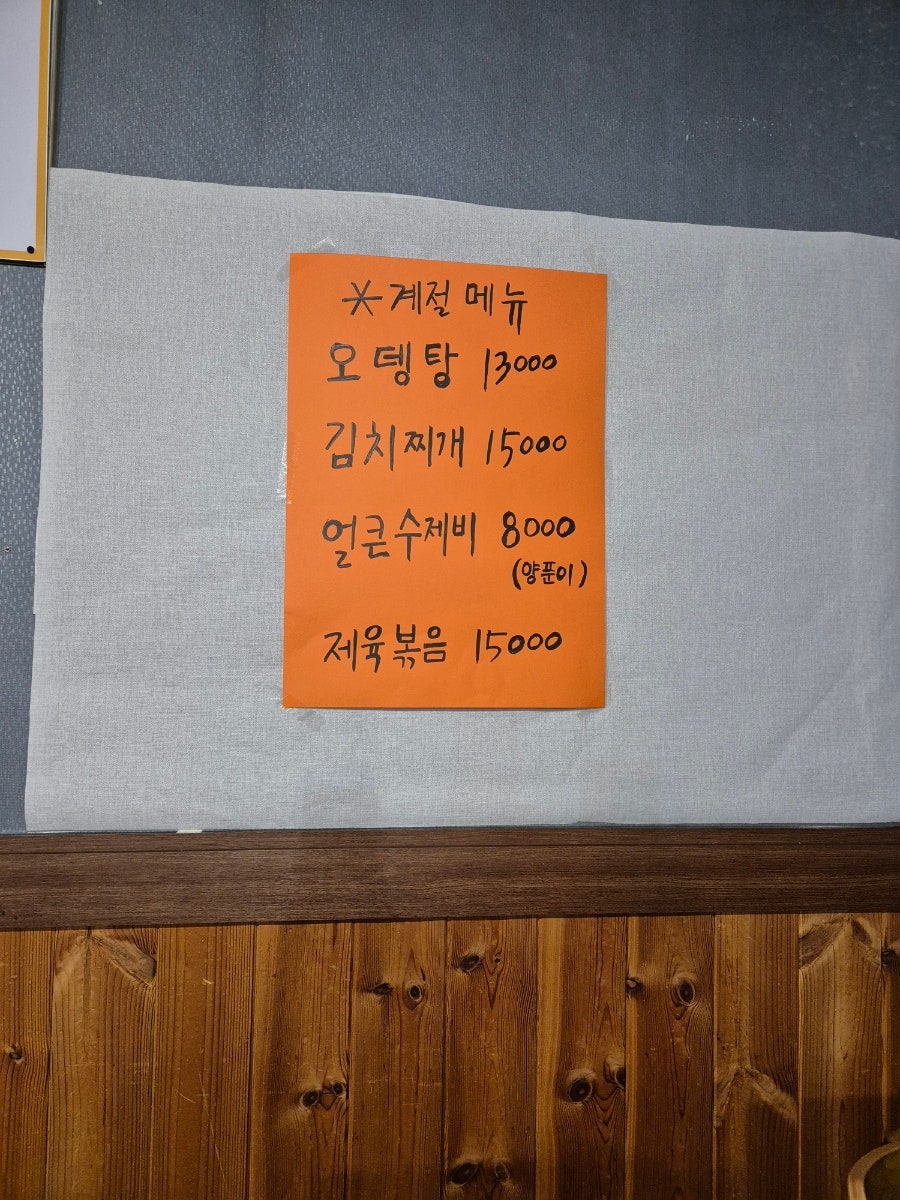 *계절 메뉴
오뎅탕 13000
김치찌개 15000
얼큰수제비 8000
(양푼이)
제육볶음 15000